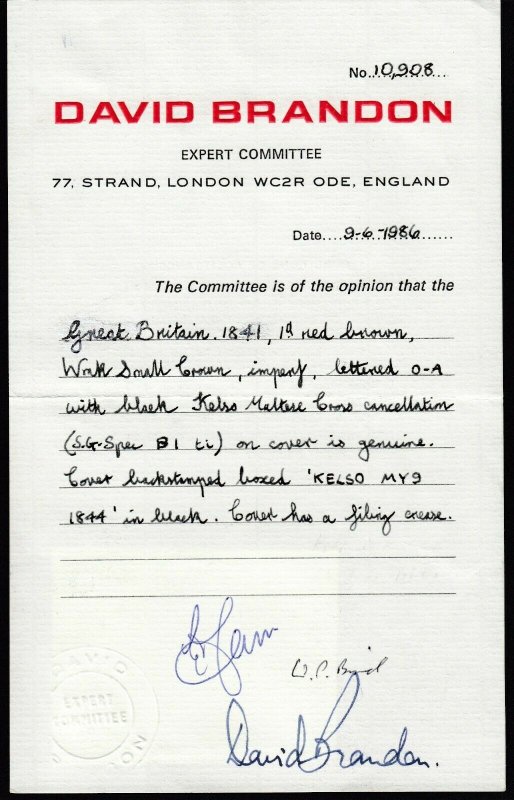 No. 10,908
DAVID BRANDON
EXPERT COMMITTEE
77, STRAND, LONDON WC2R ODE, ENGLAND
Date....9-6-1986......
The Committee is of the opinion that the
Great Britain. 1841, 1d red brown,
Wmk Small Crown, imperf, lettered O-A
with black Kelso Maltese Cross cancellation
(S.G. Spec B1 ti) on cover is genuine.
Cover backstamped boxed 'KELSO MY9
1844' in black. Cover has a filing crease.
DAVID
EXPERT
COMMITTEE
David Brandon.